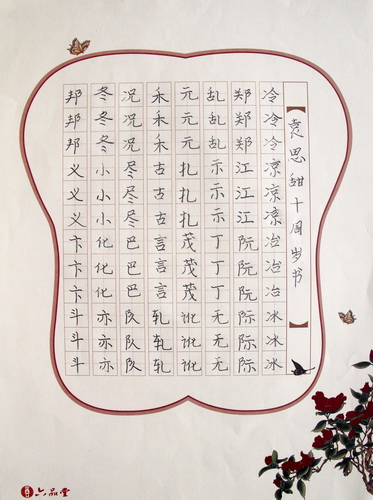 袁思甜十周岁书
冷冷冷凉凉凉冶冶冶冰冰冰
郑郑郑江江江阮阮阮际际际
乱乱乱示示示丁丁丁无无无
元元元扎扎扎茂茂茂讹讹讹
禾禾禾古古古言言言轧轧轧
况况况尽尽尽巴巴巴队队队
冬冬冬小小小化化化亦亦亦
邦邦邦义义义卞卞卞斗斗斗
六品堂